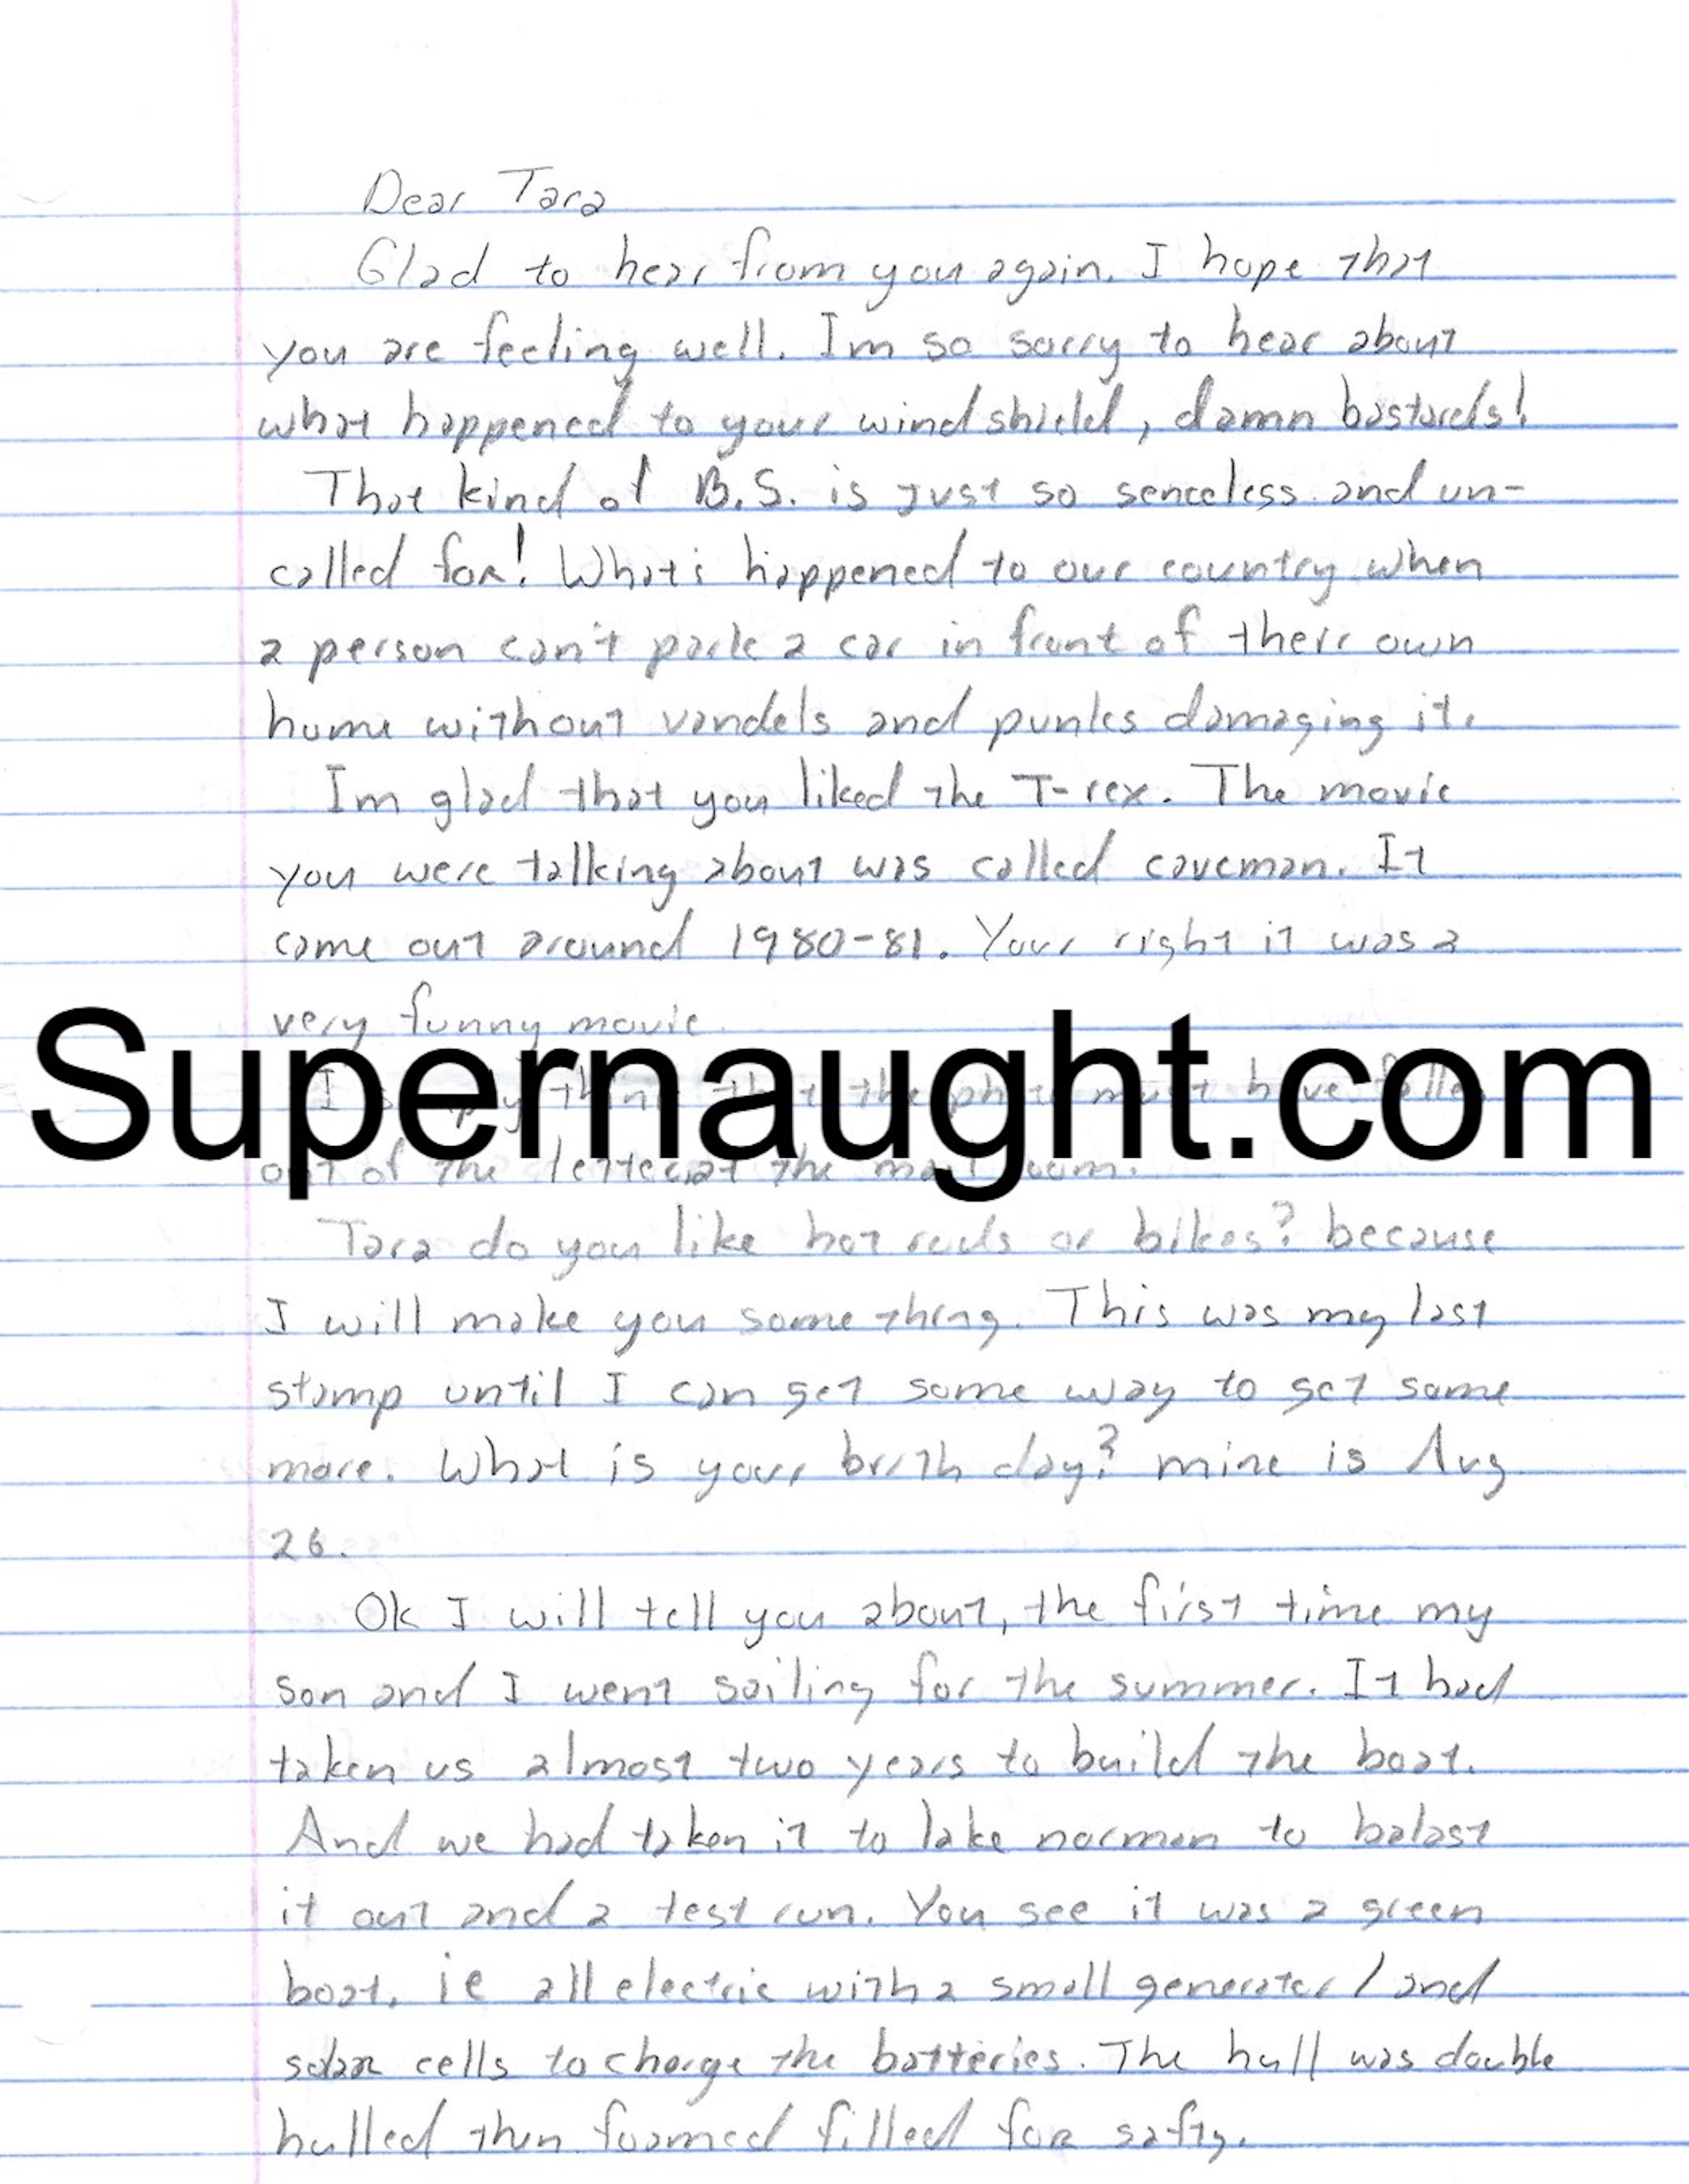 Dear Tara
Glad to hear from you again. I hope that
you are feeling well. Im so sorry to hear about
what happened to your windshield, damn bastards!
That kind of B.S. is just so senceless and un-
called for! What's happened to our country when
a person can't park a car in front of their own
home without vandels and punks damaging it.
Im glad that you liked the T-rex. The movie
you were talking about was called caveman. It
come out around 1980-81. Your right it was a
very funny movie.
Supernaught.com
I the must have
out of the letter at the mail room.
Tara do you like hot rods or bikes? because
I will make you some thing. This was my last
stamp until I can get some way to get some
more. What is your birth day? mine is Aug
26.
Ok I will tell you about, the first time my
son and I went sailing for the summer. It had
taken us almost two years to build the boat.
And we had taken it to lake norman to balast
it out and a test run. You see it was a green
boat, ie all electric with a small generater / and
solar cells to charge the batteries. The hull was double
hulled then foamed filled for safty.